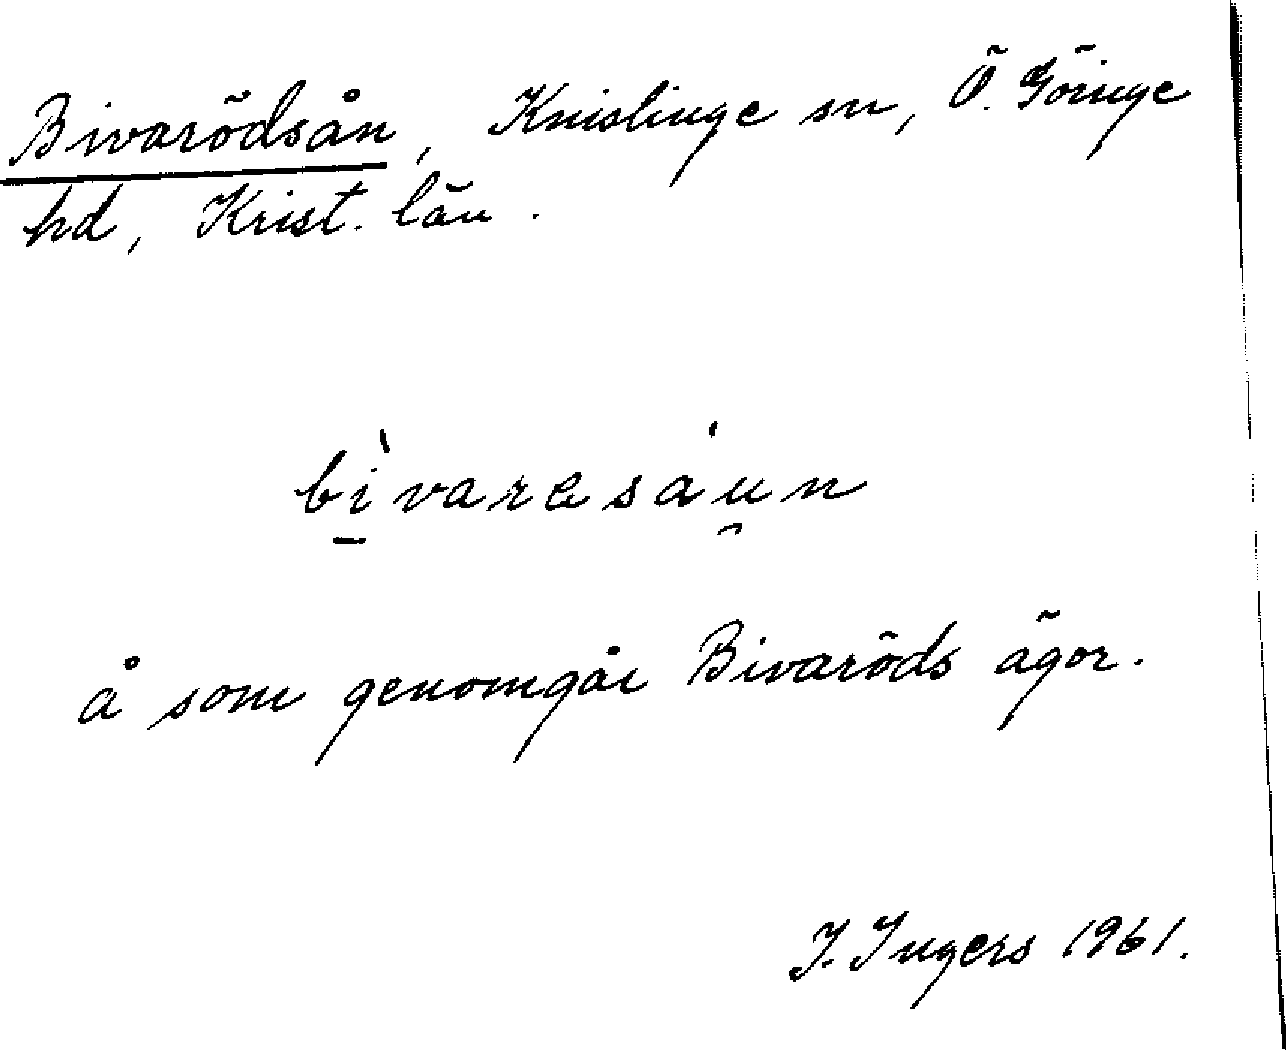 Bivarödsån, Knislinge sn, Ö. Göinge
hd, Krist. län.
bìvaresáu̯n
å som genomgår Bivaröds ägor.
I. Ingers 1961.